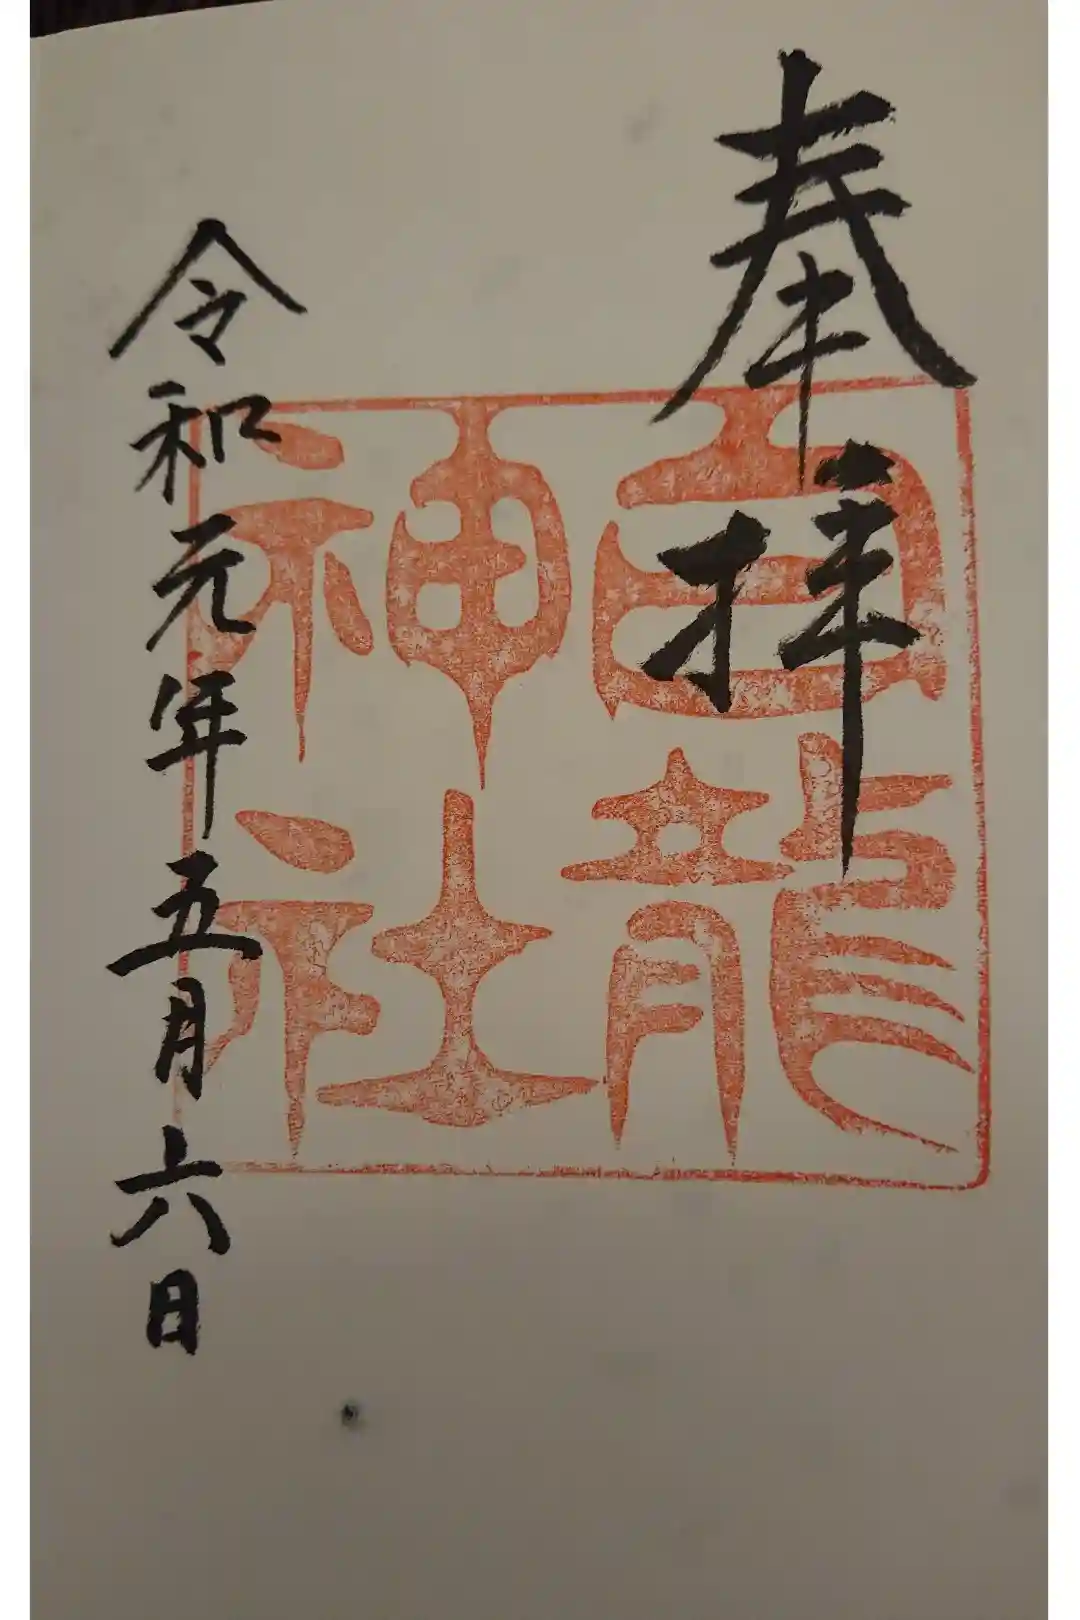 奉拝
白龍
神社
令和元年五月六日